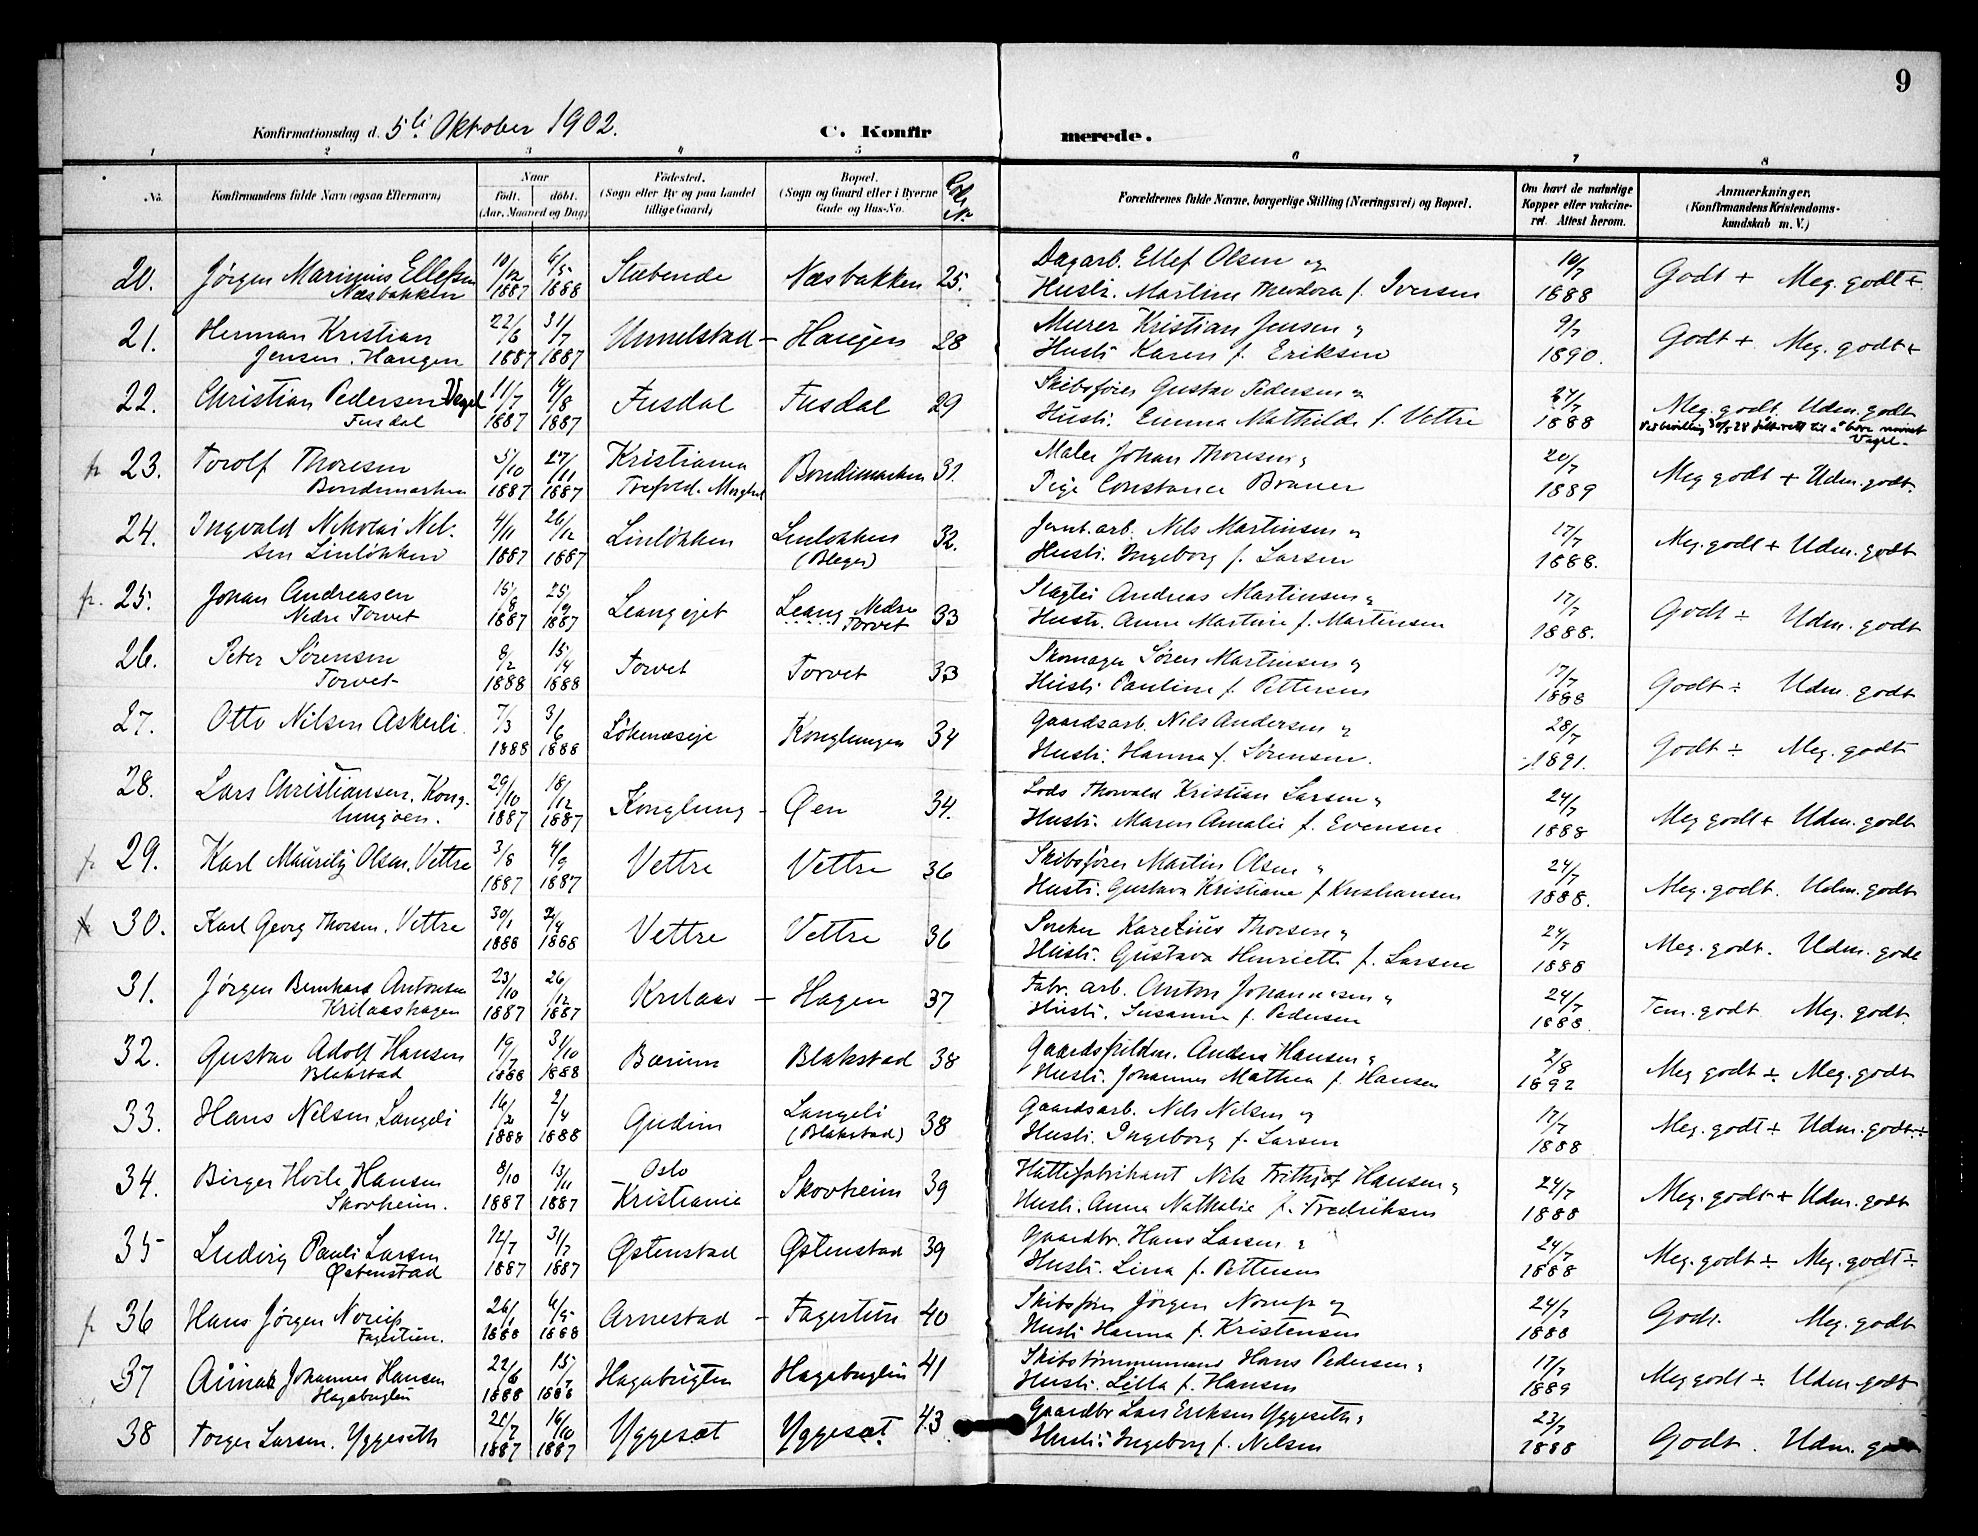 9
Konfirmationsdag d. 5te Oktober 1902. C. Konfirmerede.
1 2 3 4 5 6 7 8
No. Konfirmandens fulde Navn (ogsaa Efternavn) Naar født. døbt. (Aar, Maaned og Dag) Fødested. (Sogn eller By og paa Landet tillige Gaard) Bopæl. (Sogn og Gaard eller i Byerne Gade og Hus-No. Forældrenes fulde Navne, borgerlige Stilling (Næringsvei) og Bopæl. Om havt de naturlige Kopper eller vaccineret. Attest herom. Anmærkninger. (Konfirmandens Kristendomskundskab m. V.)
20. Jørgen Marinius Ellefsen 10/12 1887 6/5 1888 Stæbende Næsbakken 25. Dagarb. Ellef Olsen og 10/7 1888 Godt + Meg. godt +
Næsbakken Hustr. Martine Theodora f. Iversen
21. Herman Kristian 22/6 1887 31/7 1887 Unnelstad - Haugen 28 Murer Kristian Jensen og 9/7 1890. Godt + Meg. godt +
Jensen. Haugen Hustr. Karen f. Eriksen
22. Christian Pedersen Vagel 11/7 1887 14/8 1887 Fusdal Fusdal 29 Skibsfører Gustav Pedersen og 24/7 1888 Meg. godt. Udm. godt
Fusdal Hustr. Emma Mathilde f. Vettre
Vagel.
fr 23. Torolf Thoresen 5/10 1887 27/11 1887 Kristiania Bondimarken 31. Maler Johan Thoresen og 20/7 1889 Meg godt + Udm. godt.
Bondimarken Trefold. Pige Constance Brauer
24. Ingvald Nikolai Nil- 4/11 1887 26/12 1887 Linløkken Linløkken 32. Jernb. arb. Nils Martinsen og 17/7 1888. Meg. godt + Udm. godt
sen Linløkken (Bleger) Hustr. Ingeborg f. Larsen
fr. 25. Johan Andreasen 15/8 1887 25/9 1887 Leangejet Leang Nedre Torvet 33 Slagter Andreas Martinsen og 17/7 1888. Godt ÷ Udm. godt
Nedre Torvet Hustr. Anne Martine f. Martinsen
26. Peter Sørensen 8/2 1888 15/4 1888 Torvet Torvet 33 Skomager Søren Martinsen og 17/7 1888 Godt ÷ Udm. godt
Torvet Hustr. Pauline f. Pettersen
27. Otto Nilsen Askerli 7/3 1888 3/6 1888 Løkenæseje Konglungen 34 Gaardsarb. Nils Andersen og 28/7 1891. Godt ÷ Meg. godt
Hustr. Hanna f. Sørensen.
28. Lars Christiansen. Kong- 29/10 1887 18/12 1887 Konglung - Øen 34. Lods Thorvald Kristian Larsen og 24/7 1888 Meg godt + Udm. godt
lungøen. Hustr. Maren Amalie f. Evensen
fr 29. Karl Mauritz Olsen. Vettre 3/8 1887 4/9 1887 Vettre Vettre 36 Skibsfører Martin Olsen og 24/7 1888. Meg. godt. Udm. godt
Hustr. Gustava Kristiane f. Kristiansen
fr 30. Karl Georg Thorsen. Vettre 30/1 1888 2/4 1888 Vettre Vettre 36 Sneker Karelius Thorsen og 24/7 1888 Meg. godt. Udm. godt
Hustr. Gustava Henriette f. Larsen
31. Jørgen Bernhard Antonsen 23/10 1887 26/12 1887 Krilaas - Hagen 37 Fabr. arb. Anton Johannesen og 24/7 1888. Tem. godt Meg. godt.
Krilaashagen Hustr. Susanne f. Pedersen
32. Gustav Adolf Hansen 19/7 1888 31/10 1888 Bærum Blakstad 38 Gaardsfuldm. Anders Hansen og 2/8 1892 Meg godt ÷ Meg. godt
Blakstad Hustr. Johannes Mathea f. Hansen
33. Hans Nilsen Langeli 16/2 1888 2/4 1888 Gudim Langeli (Blakstad) 38 Gaardsarb. Nils Nilsen og 17/7 1888 Meg. godt ÷ Udm. godt ÷
Hustr. Ingeborg f. Larsen
34. Birger Hoile Hansen 8/10 1887 13/11 1887 Oslo Kristiania Skovheim 39 Hattefabrikant Nils Frithjof Hansen og 24/7 1888 Meg. godt + Udm. godt
Skovheim. Hustr. Anna Nathalie f. Fredriksen
35 Ludvig Pauli Larsen 12/7 1887 31/7 1887 Østenstad Østenstad 39 Gaardbr. Hans Larsen og 24/7 1888 Meg. godt ÷ Meg. godt ÷
Østenstad Hustr. Lina f. Pettersen
fr 36 Hans Jørgen Norup 26/1 1888 6/5 1888 Arnestad - Fagertun 40 Skibsfører Jørgen Norup og 24/7 1888 Godt. Meg. godt
Fagertun. Hustr. Hanna f. Kristensen
37 Johannes Hansen 22/6 1888 15/7 1888 Hagabugten Hagabugten 41 Skibstømmermand Hans Pedersen og 17/7 1889 Meg godt ÷ Udm. godt
Hagabugten Hustr. Lilla f. Hansen
38 Torger Larsen. Yggeseth 21/7 1887 16/10 1887 Yggesæt Yggesæt 43 Gaardbr Lars Eriksen Yggeseth og 23/7 1888 Godt. Udm. godt
Hustr. Ingeborg f. Nilsen